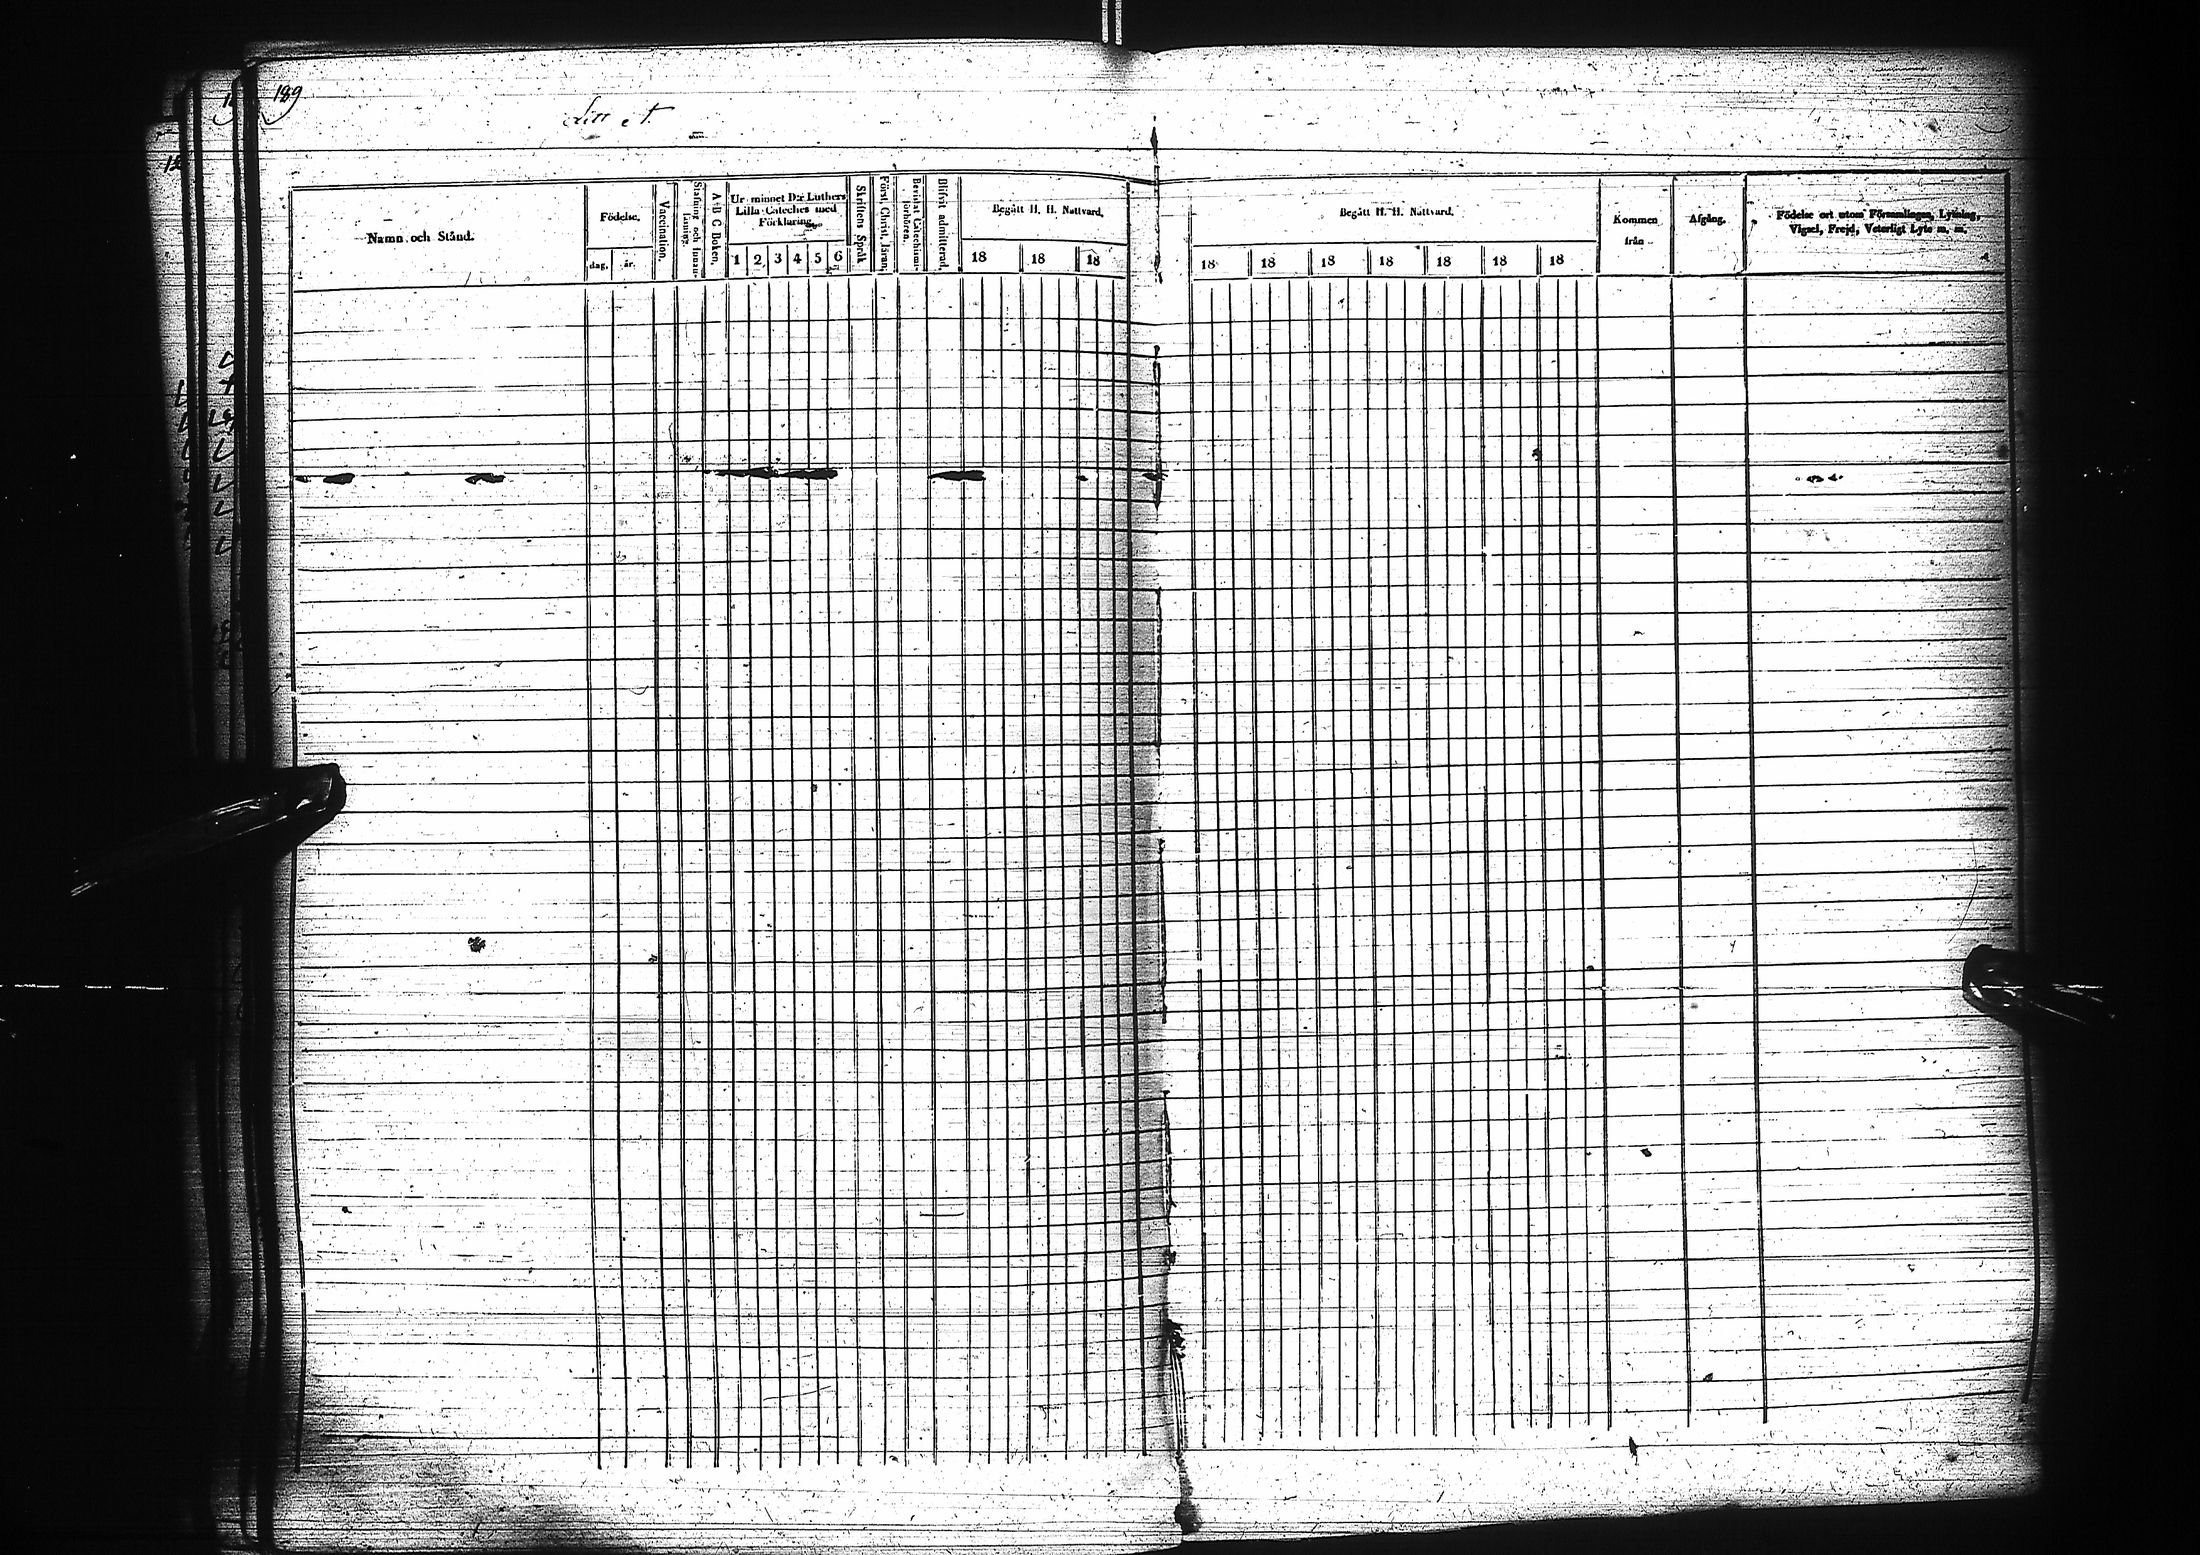 189
Litt
Namn och Stånd.
Födelse.
dag, år.
Vaccination.
Stafning och innanläsning.
A-B C Boken.
Ur minnet D:r Luthers
Lilla Cateches med
Förklaring.
1 2 3 4 5 6
Skriftens Språk
Först. Christ. läran.
Bevistat Catechismi-
förhören.
Blifvit admitterad.
Begått H. H. Nattvard.
18 18 18
Begått H. H. Nattvard.
18 18 18 18 18 18 18
Kommen
från
Afgång.
Födelse ort utom Församlingen, Lysning,
Vigsel, Frejd, Veterligt Lyte m. m.